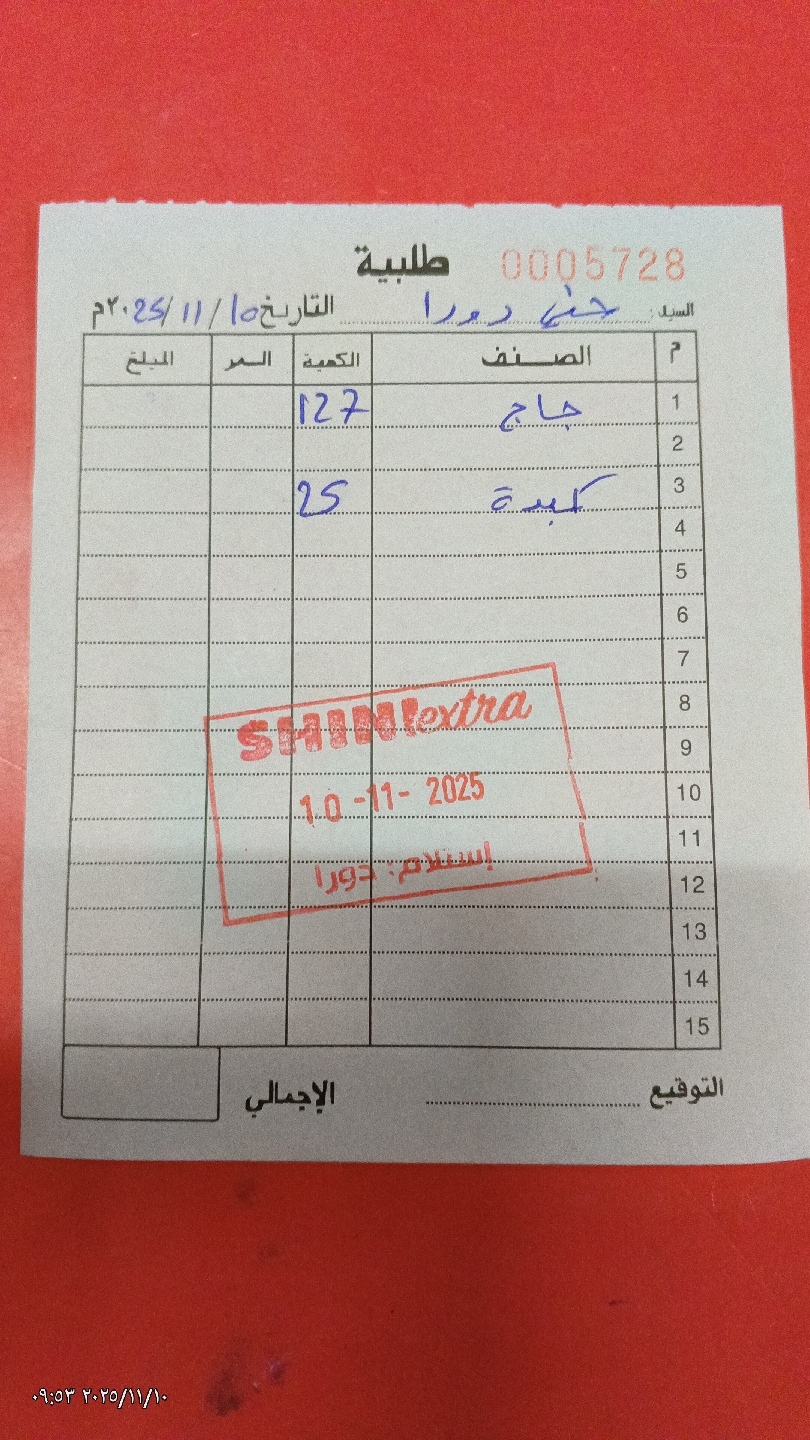 طلبية 0005728
السيد: دورا التاريخ 10/ 11/ 2025م
م الصنف الكمية السعر المبلغ
1 جاج 127
2
3 كبدة 25
4
5
6
7
8
9
10
11
12
13
14
15
SHINI extra
10 -11- 2025
إستلام: دورا
التوقيع الإجمالي
٠٩:٥٣ ٢٠٢٥/١١/١٠